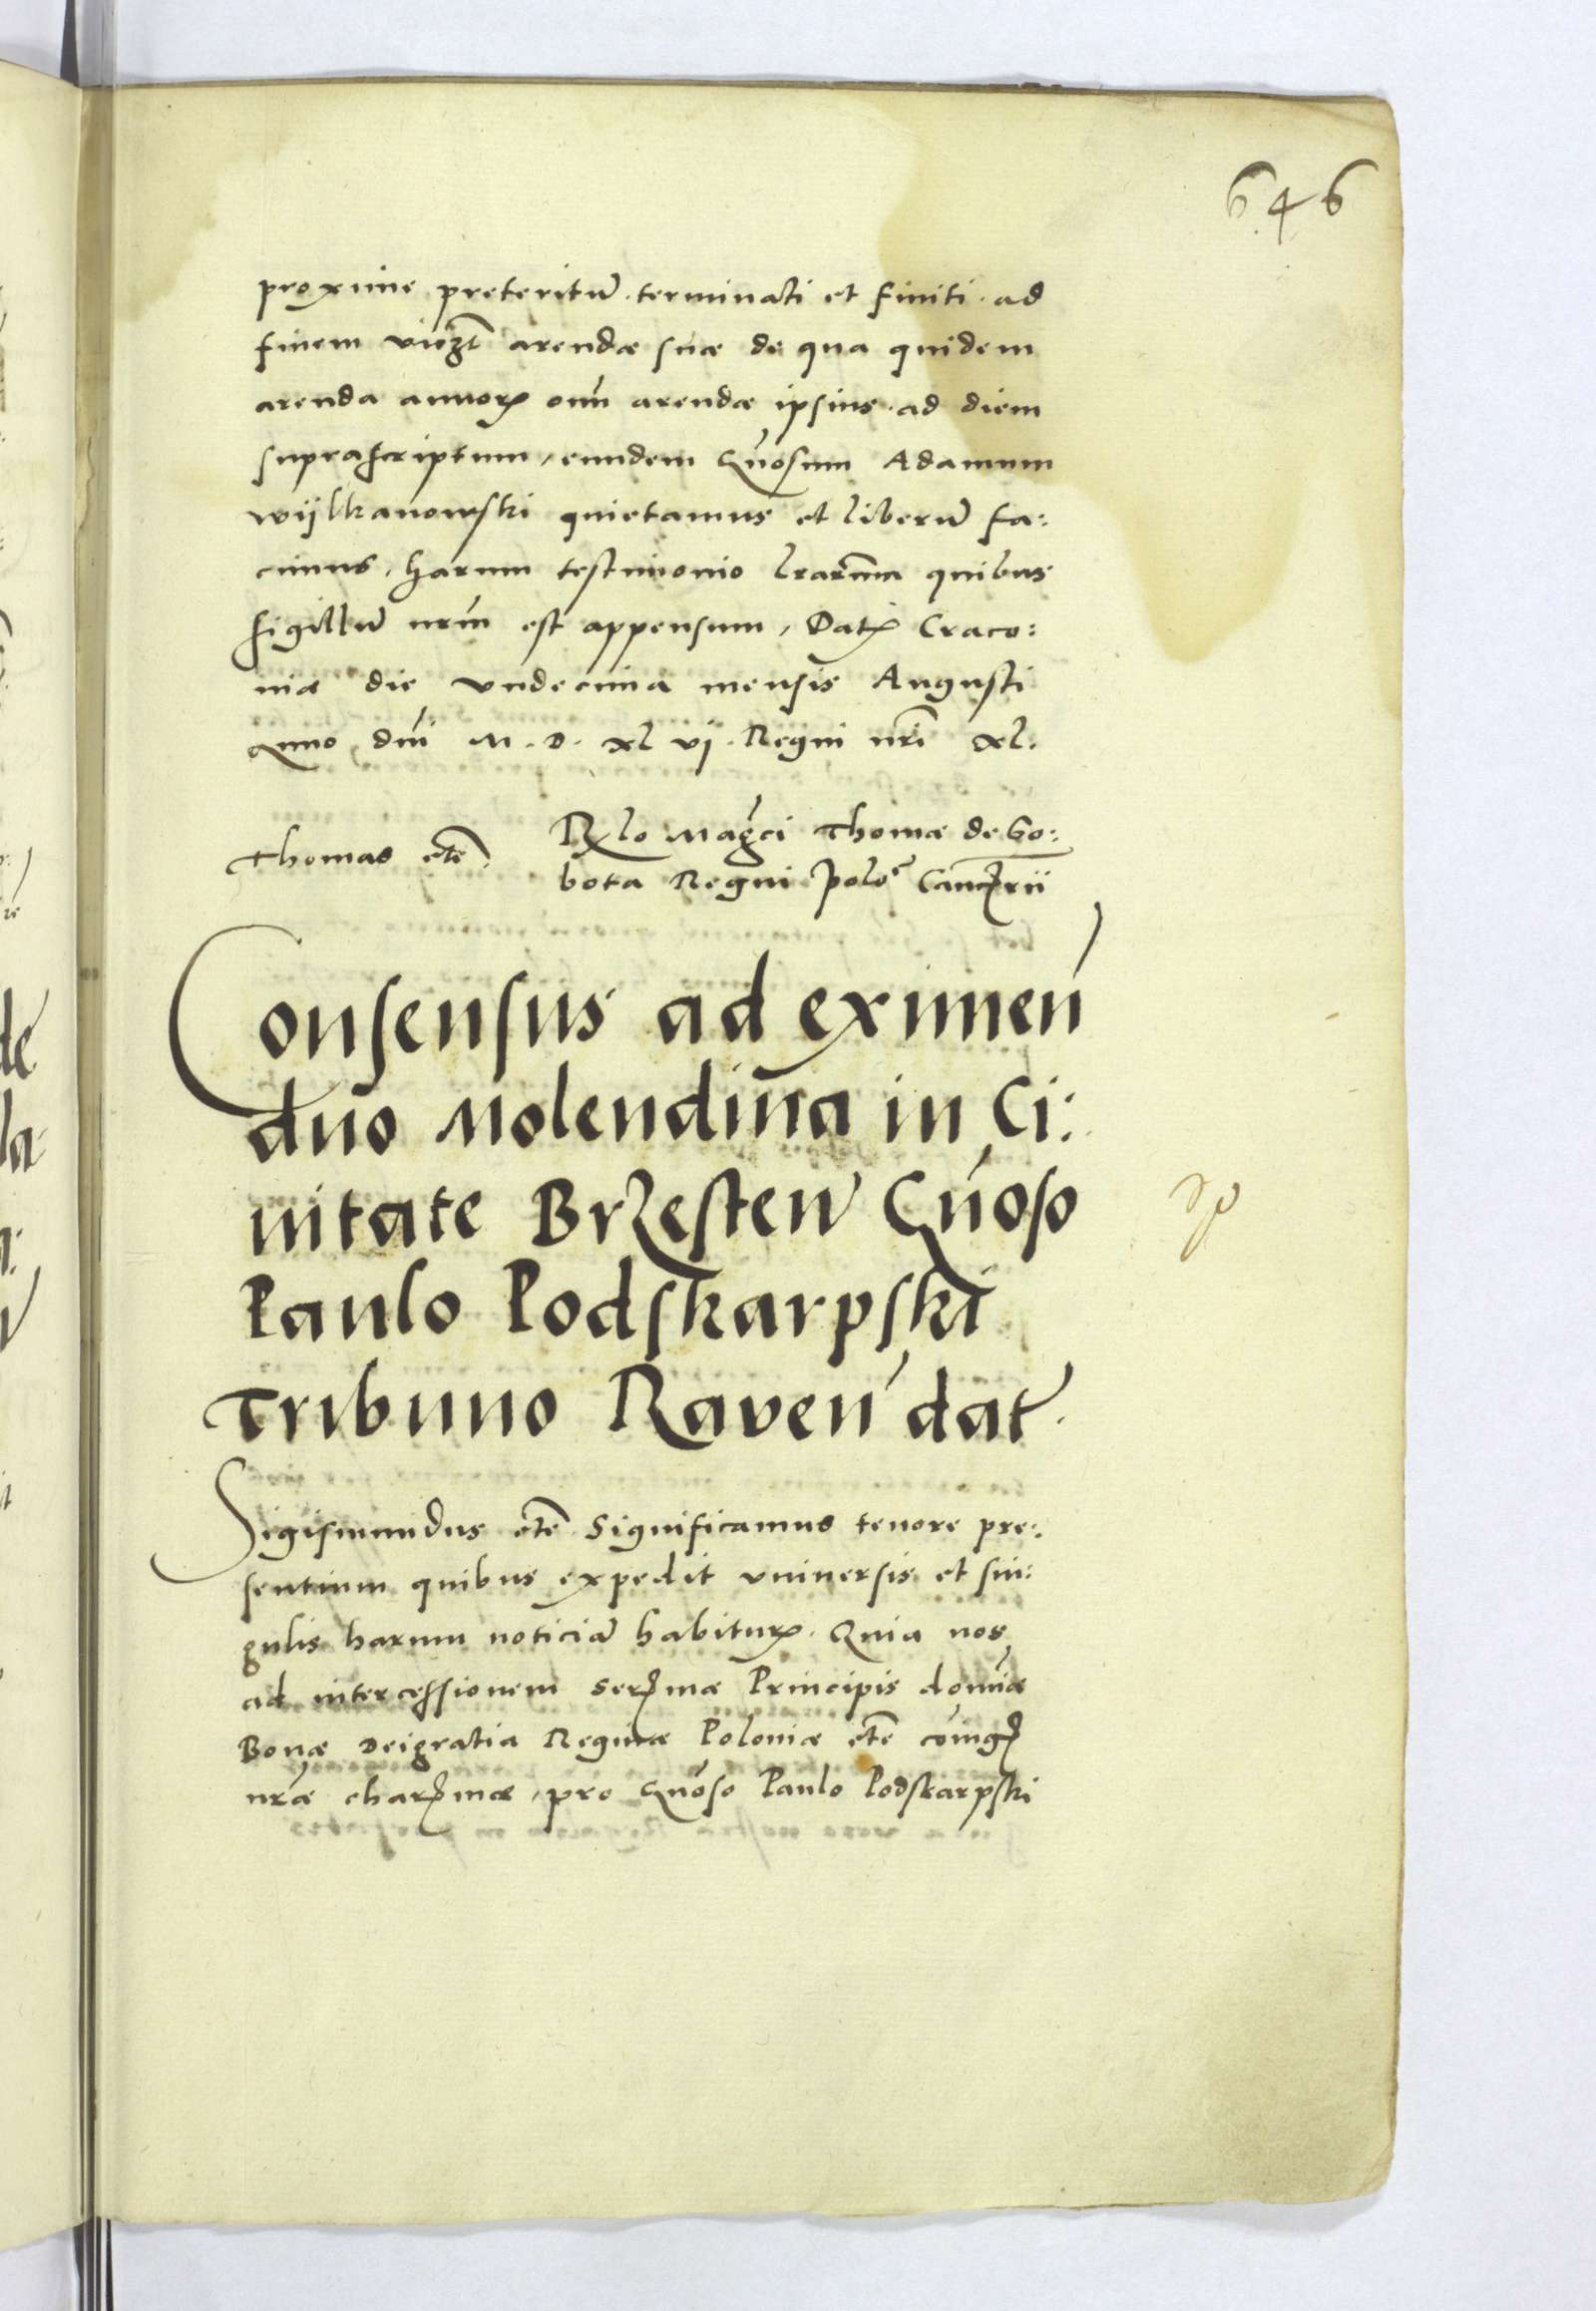 646
proxime preteritū. terminati et finiti. ad
finem viꝫt arendæ suæ de qua quidem
arenda annorꝝ oīm arendæ ipsius. ad diem
suprascriptum, eundem Gn̄osum Adamum
wijlkanowski quietamus et liberū fa:
cimus, harum testimonio lrarum quibus
sigillū nrm̄ est appensum, Datꝝ Craco:
niæ die vndecima mensis Augusti
Anno dm̄ M. D. xl vj. Regni nrī xl.
Thomas etc̄.
Rlo Magci Thomæ de So:
bota Regni Polo Cancrii
Consensus ad eximen̄
duo Molendina in Ci:
uitate Brzesten̄ Gn̄oso
Paulo Podskarpski
Tribuno Raven̄ dat.
Sigismundus etc̄ Significamus tenore pre:
sentium quibus expedit vniuersis et sin:
gulis harum noticiā habiturꝝ. Quia nos
ad intercessionem Serꝫmæ Principis dominæ
Bonæ Deigratia Reginæ Poloniæ etc̄ coniugꝫ
nræ charꝫmæ, pro Gn̄oso Paulo Podskarpski